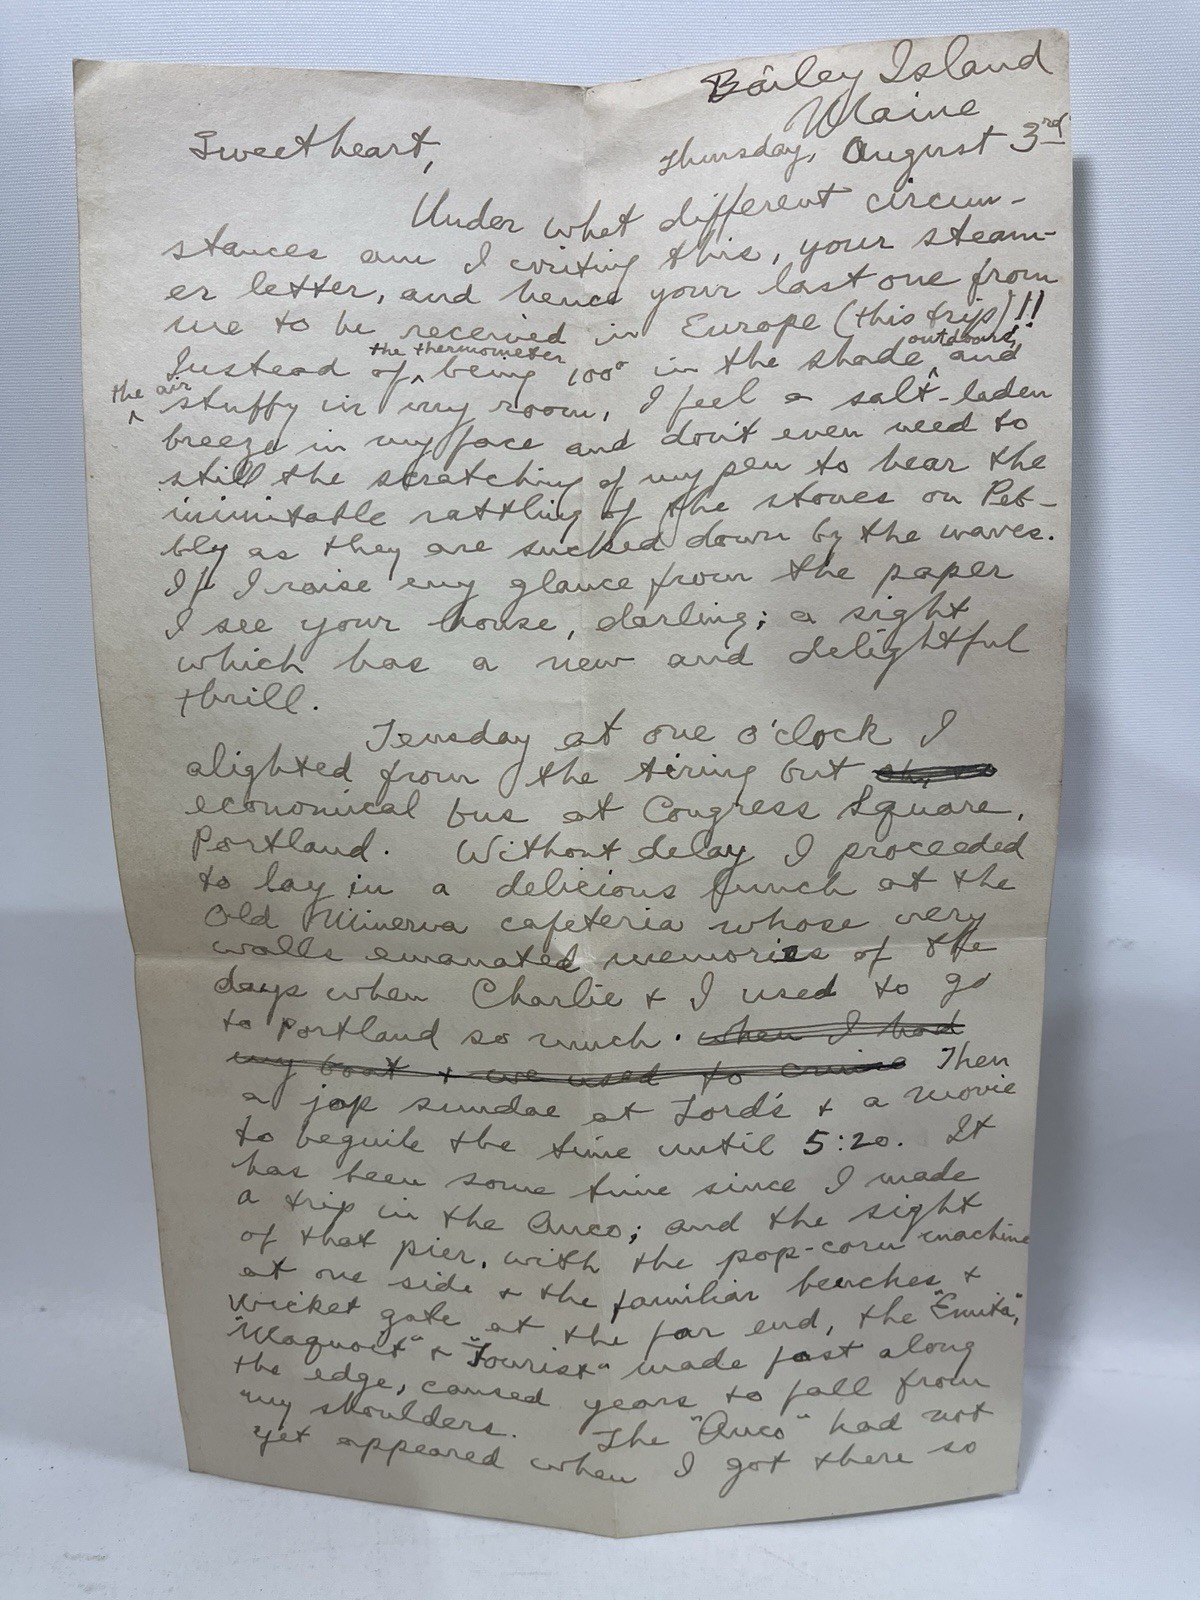 Bailey Island
Maine
Thursday, August 3rd
Sweetheart,
Under what different circum-
stances am I writing this, your steam-
er letter, and hence your last one from
me to be received in Europe (this trip)!!
Instead of ^the thermometer being 100° in the shade ^outdoors, and
^the air stuffy in my room, I feel a salt-laden
breeze in my face and don't even need to
still the scratching of my pen to hear the
inimitable rattling of the stones on Peb-
bly as they are sucked down by the waves.
If I raise my glance from the paper
I see your house, darling; a sight
which has a new and delightful
thrill.
Teusday at one o'clock I
alighted from the tiring but
economical bus at Congress Square,
Portland. Without delay I proceeded
to lay in a delicious lunch at the
Old Minerva cafeteria whose very
walls emanated memories of the
days when Charlie & I used to go
to Portland so much. when I had
my boat & we used to cruise Then
a jap sundae at Lord's & a movie
to beguile the time until 5:20. It
has been some time since I made
a trip in the Auco; and the sight
of that pier, with the pop-corn machine
at one side & the familiar benches &
wicket gate at the far end, the "Emita",
"Maquoit" & "Tourist" made fast along
the edge, caused years to fall from
my shoulders. The "Auco" had not
yet appeared when I got there so